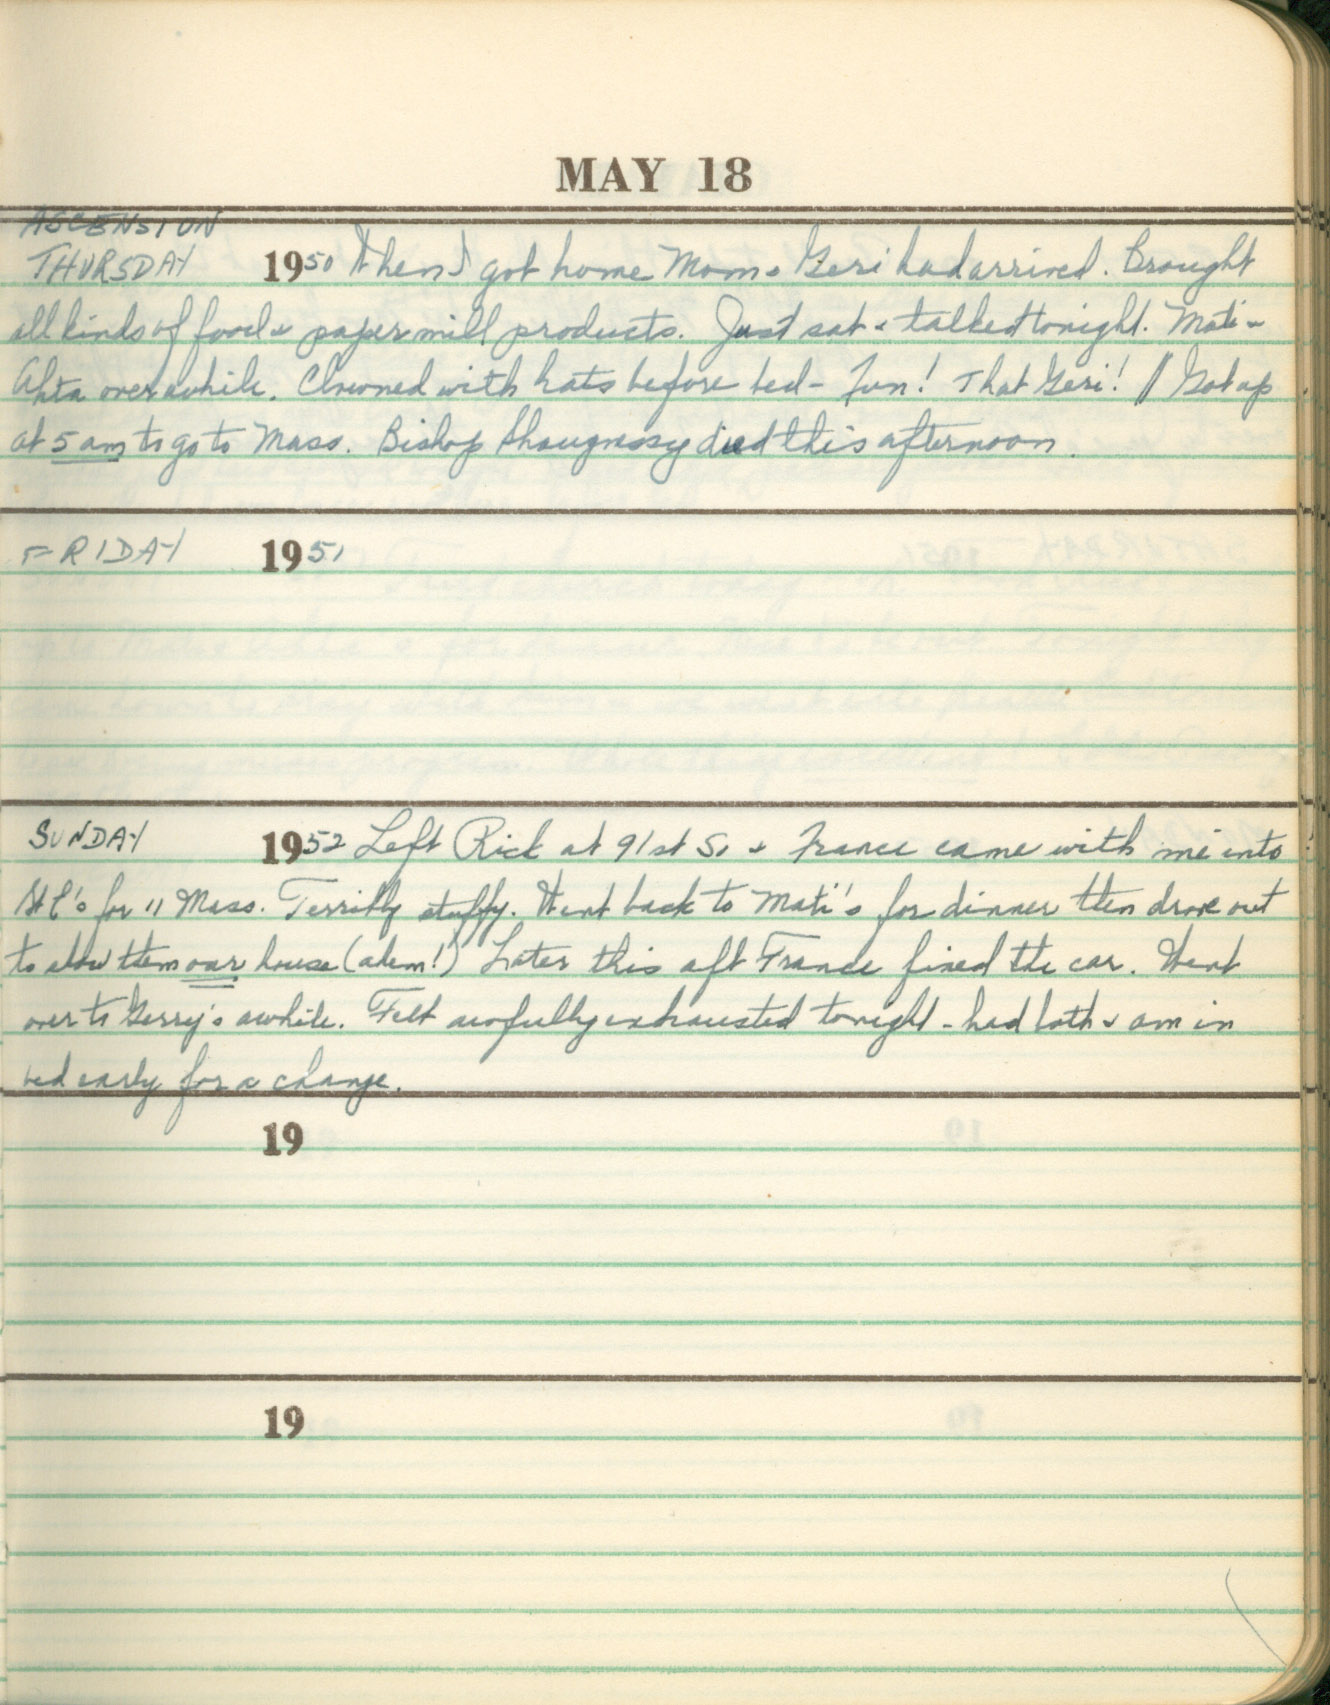 MAY 18
ASCENSION
THURSDAY 1950 When I got home Mom & Geri had arrived. Brought
all kinds of food & paper mill products. Just sat & talked tonight. Mati &
over awhile. Clowned with hats before bed - Fun! That Geri! // Got up
at 5 am to go to Mass. Bishop Shaugnessy died this afternoon.
FRIDAY 1951
SUNDAY 1952 Left Rick at 91st St & France came with me into
St C's for 11 Mass. Terribly stuffy. Went back to Mati's for dinner then drove out
to show them our house (ahem!) Later this aft France fixed the car. Went
over to Gerry's awhile. Felt awfully exhausted tonight - had bath & am in
bed early for a change.
19
19